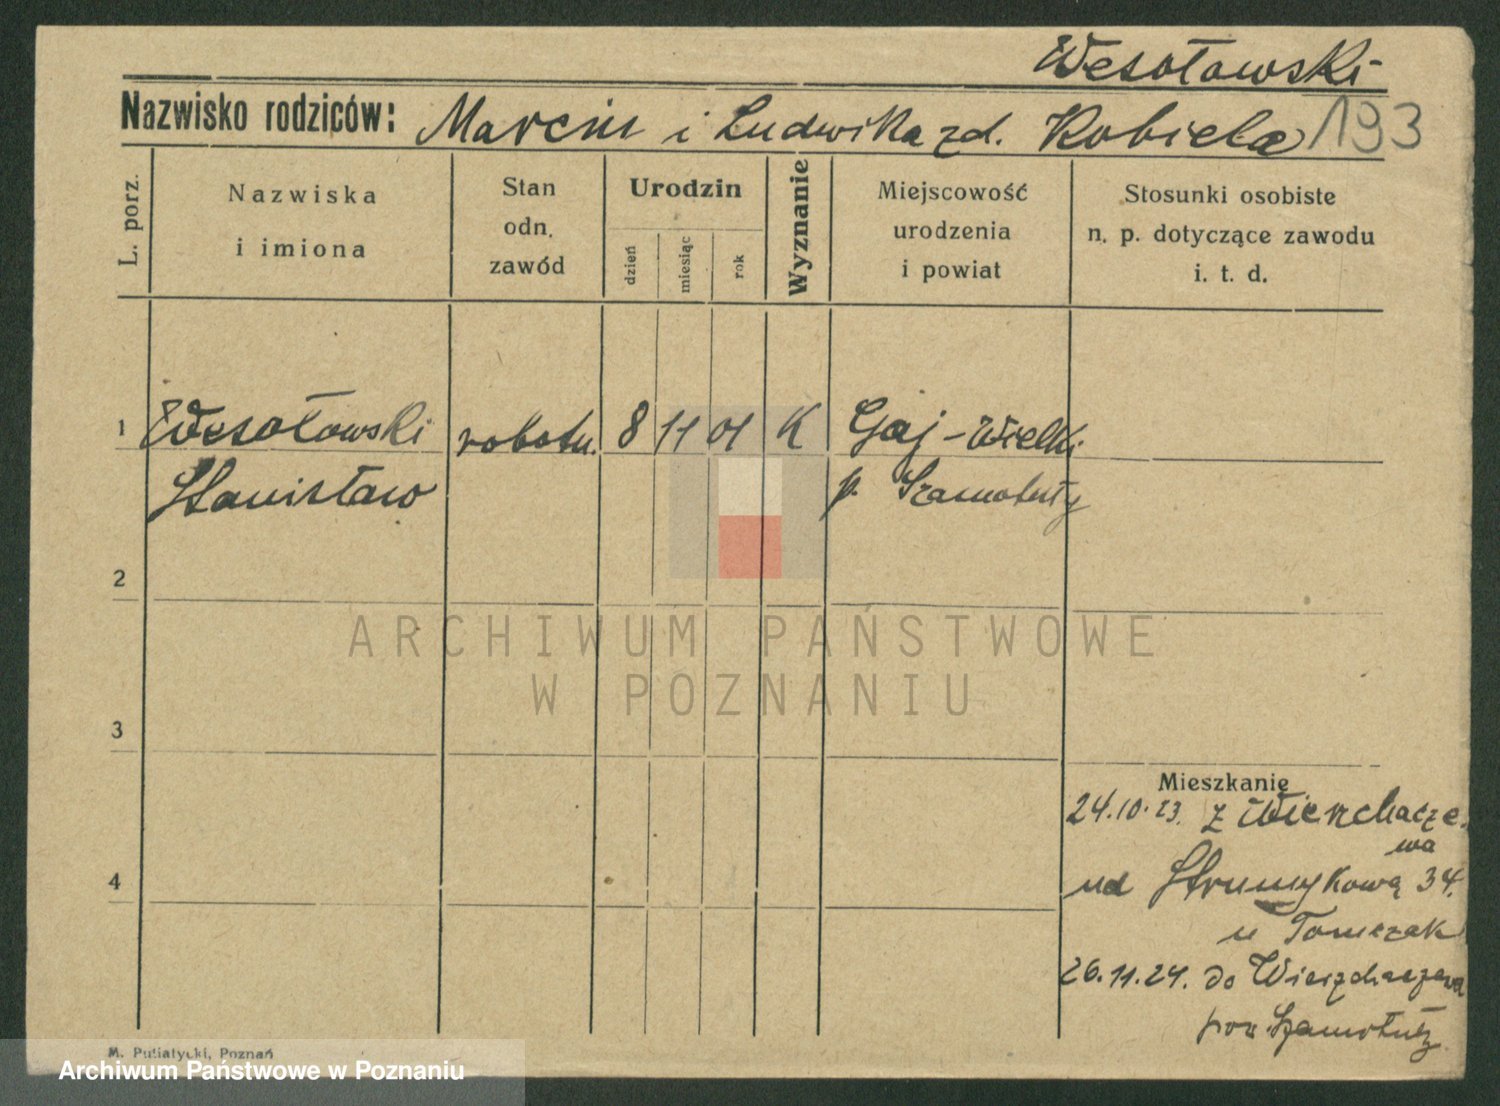 Wesołowski
Nazwisko rodziców: Marcin i Ludwika zd. Kobiela 193
L. porz.
Nazwiska
i imiona
Stan
odn.
zawód
Urodzin
dzień
miesiąc
rok
Wyznanie
Miejscowość
urodzenia
i powiat
Stosunki osobiste
n. p. dotyczące zawodu
i. t. d.
1 Wesołowski robotn. 8 11 01 K Gaj-Wielki
Stanisław p. Szamotuły
2
3
4
ARCHIWUM PAŃSTWOWE
W POZNANIU
Mieszkanie
24.10.23. z Wierzchacze-
wa
ud Strumykową 34.
u Tomczak
26.11.24. do Wierzchaczewa
pow. Szamotuły
M. Putiatycki, Poznań
Archiwum Państwowe w Poznaniu